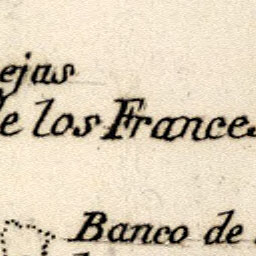 ejas
e los Frances
Banco de